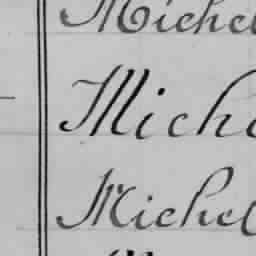 Michel
Miche
Michel